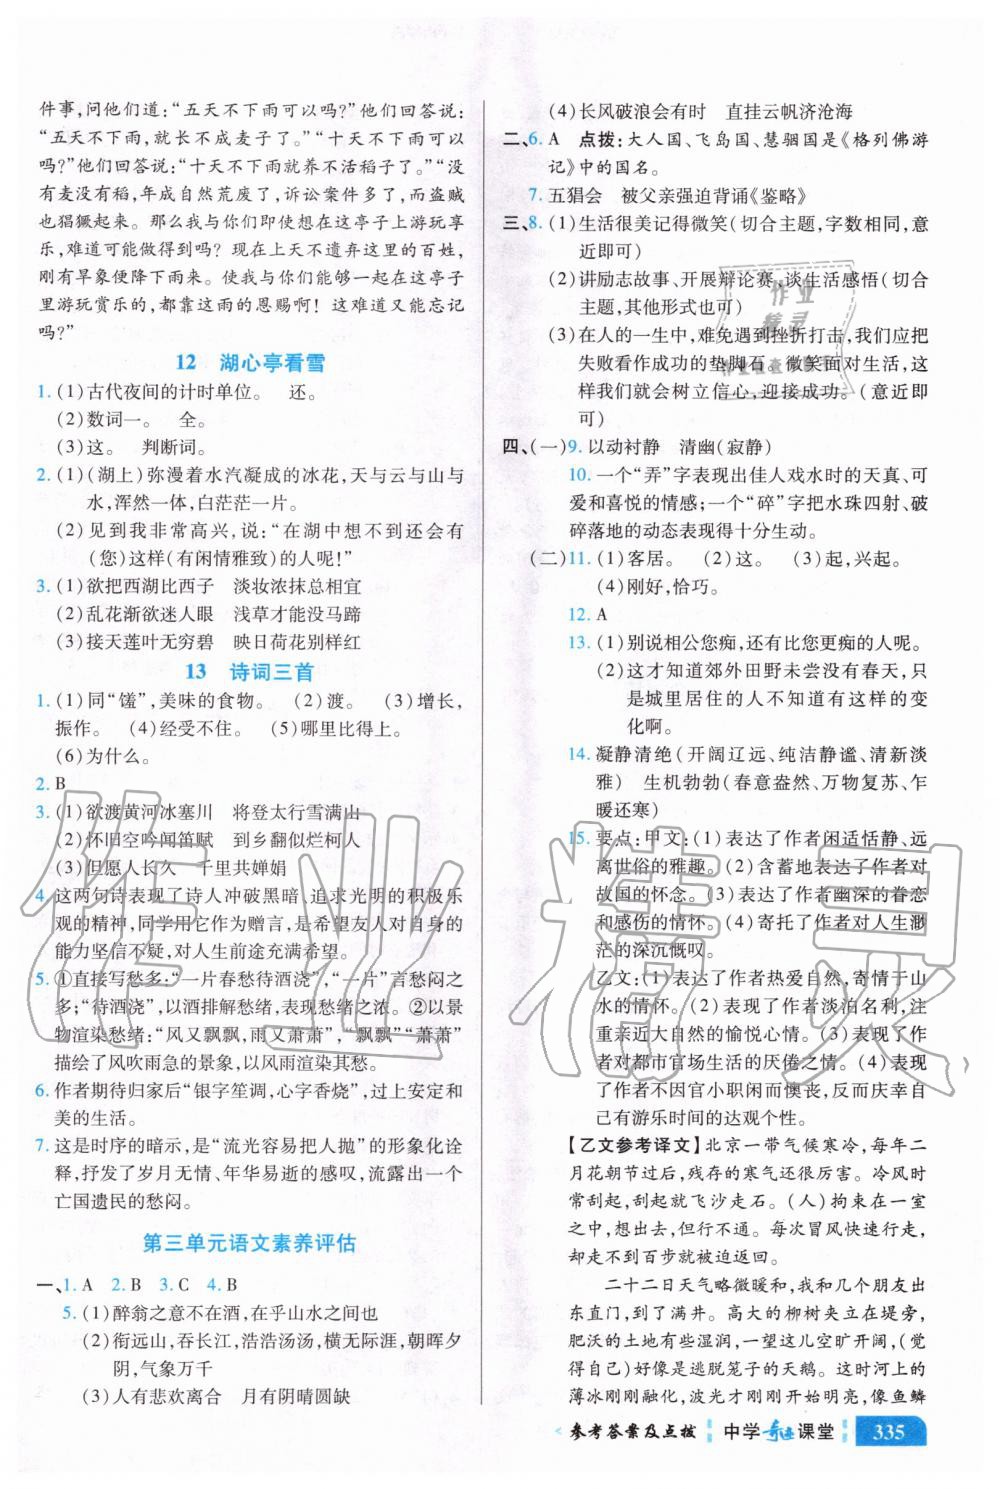 件事，问他们道：“五天不下雨可以吗？”他们回答说：
“五天不下雨，就长不成麦子了。”“十天不下雨可以
吗？”他们回答说：“十天不下雨就养不活稻子了。”“没
有麦没有稻，年成自然荒废了，诉讼案件多了，而盗贼
也猖獗起来。那么我与你们即使想在这亭子上游玩享
乐，难道可能做得到吗？现在上天不遗弃这里的百姓，
刚有旱象便降下雨来。使我与你们能够一起在这亭子
里游玩赏乐的，都靠这雨的恩赐啊！这难道又能忘记
吗？”
12 湖心亭看雪
1.(1)古代夜间的计时单位。 还。
(2)数词一。 全。
(3)这。 判断词。
2.(1)(湖上)弥漫着水汽凝成的冰花，天与云与山与
水，浑然一体，白茫茫一片。
(2)见到我非常高兴，说：“在湖中想不到还会有
(您)这样(有闲情雅致)的人呢！”
3.(1)欲把西湖比西子 淡妆浓抹总相宜
(2)乱花渐欲迷人眼 浅草才能没马蹄
(3)接天莲叶无穷碧 映日荷花别样红
13 诗词三首
1.(1)同“馐”，美味的食物。 (2)渡。 (3)增长，
振作。 (4)经受不住。 (5)哪里比得上。
(6)为什么。
2. B
3.(1)欲渡黄河冰塞川 将登太行雪满山
(2)怀旧空吟闻笛赋 到乡翻似烂柯人
(3)但愿人长久 千里共婵娟
4.这两句诗表现了诗人冲破黑暗、追求光明的积极乐
观的精神，同学用它作为赠言，是希望友人对自己的
能力坚信不疑，对人生前途充满希望。
5.①直接写愁多：“一片春愁待酒浇”，“一片”言愁闷之
多；“待酒浇”，以酒排解愁绪，表现愁绪之浓。②以景
物渲染愁绪：“风又飘飘，雨又萧萧”，“飘飘”“萧萧”
描绘了风吹雨急的景象，以风雨渲染其愁。
6.作者期待归家后“银字笙调，心字香烧”，过上安定和
美的生活。
7.这是时序的暗示，是“流光容易把人抛”的形象化诠
释，抒发了岁月无情、年华易逝的感叹，流露出一个
亡国遗民的愁闷。
第三单元语文素养评估
一、1. A 2. B 3. C 4. B
5.(1)醉翁之意不在酒，在乎山水之间也
(2)衔远山，吞长江，浩浩汤汤，横无际涯，朝晖夕
阴，气象万千
(3)人有悲欢离合 月有阴晴圆缺
(4)长风破浪会有时 直挂云帆济沧海
二、6. A 点拨：大人国、飞岛国、慧骃国是《格列佛游
记》中的国名。
7.五猖会 被父亲强迫背诵《鉴略》
三、8.(1)生活很美记得微笑(切合主题，字数相同，意
近即可)
(2)讲励志故事、开展辩论赛、谈生活感悟(切合
主题，其他形式也可)
(3)在人的一生中，难免遇到挫折打击，我们应把
失败看作成功的垫脚石。微笑面对生活，这
样我们就会树立信心，迎接成功。(意近即
可)
四、(一)9.以动衬静 清幽(寂静)
10.一个“弄”字表现出佳人戏水时的天真、可
爱和喜悦的情感；一个“碎”字把水珠四射、破
碎落地的动态表现得十分生动。
(二)11.(1)客居。 (2)这。 (3)起，兴起。
(4)刚好，恰巧。
12. A
13.(1)别说相公您痴，还有比您更痴的人呢。
(2)这才知道郊外田野未尝没有春天，只
是城里居住的人不知道有这样的变
化啊。
14.凝静清绝(开阔辽远、纯洁静谧、清新淡
雅) 生机勃勃(春意盎然、万物复苏、乍
暖还寒)
15.要点：甲文：(1)表达了作者闲适恬静、远
离世俗的雅趣。(2)含蓄地表达了作者对
故国的怀念。(3)表达了作者幽深的眷恋
和感伤的情怀。(4)寄托了作者对人生渺
茫的深沉慨叹。
乙文：(1)表达了作者热爱自然，寄情于山
水的情怀。(2)表现了作者淡泊名利，注
重亲近大自然的愉悦心情。(3)表现了作
者对都市官场生活的厌倦之情。(4)表现
了作者不因官小职闲而懊丧，反而庆幸自
己有游乐时间的达观个性。
【乙文参考译文】北京一带气候寒冷，每年二
月花朝节过后，残存的寒气还很厉害。冷风时
常刮起，刮起就飞沙走石。(人)拘束在一室
之中，想出去，但行不通。每次冒风快速行走，
却走不到百步就被迫返回。
二十二日天气略微暖和，我和几个朋友出
东直门，到了满井。高大的柳树夹立在堤旁，
肥沃的土地有些湿润，一望这儿空旷开阔，(觉
得自己)好像是逃脱笼子的天鹅。这时河上的
薄冰刚刚融化，波光才刚刚开始明亮，像鱼鳞
参考答案及点拨 中学奇迹课堂 335
作业精灵